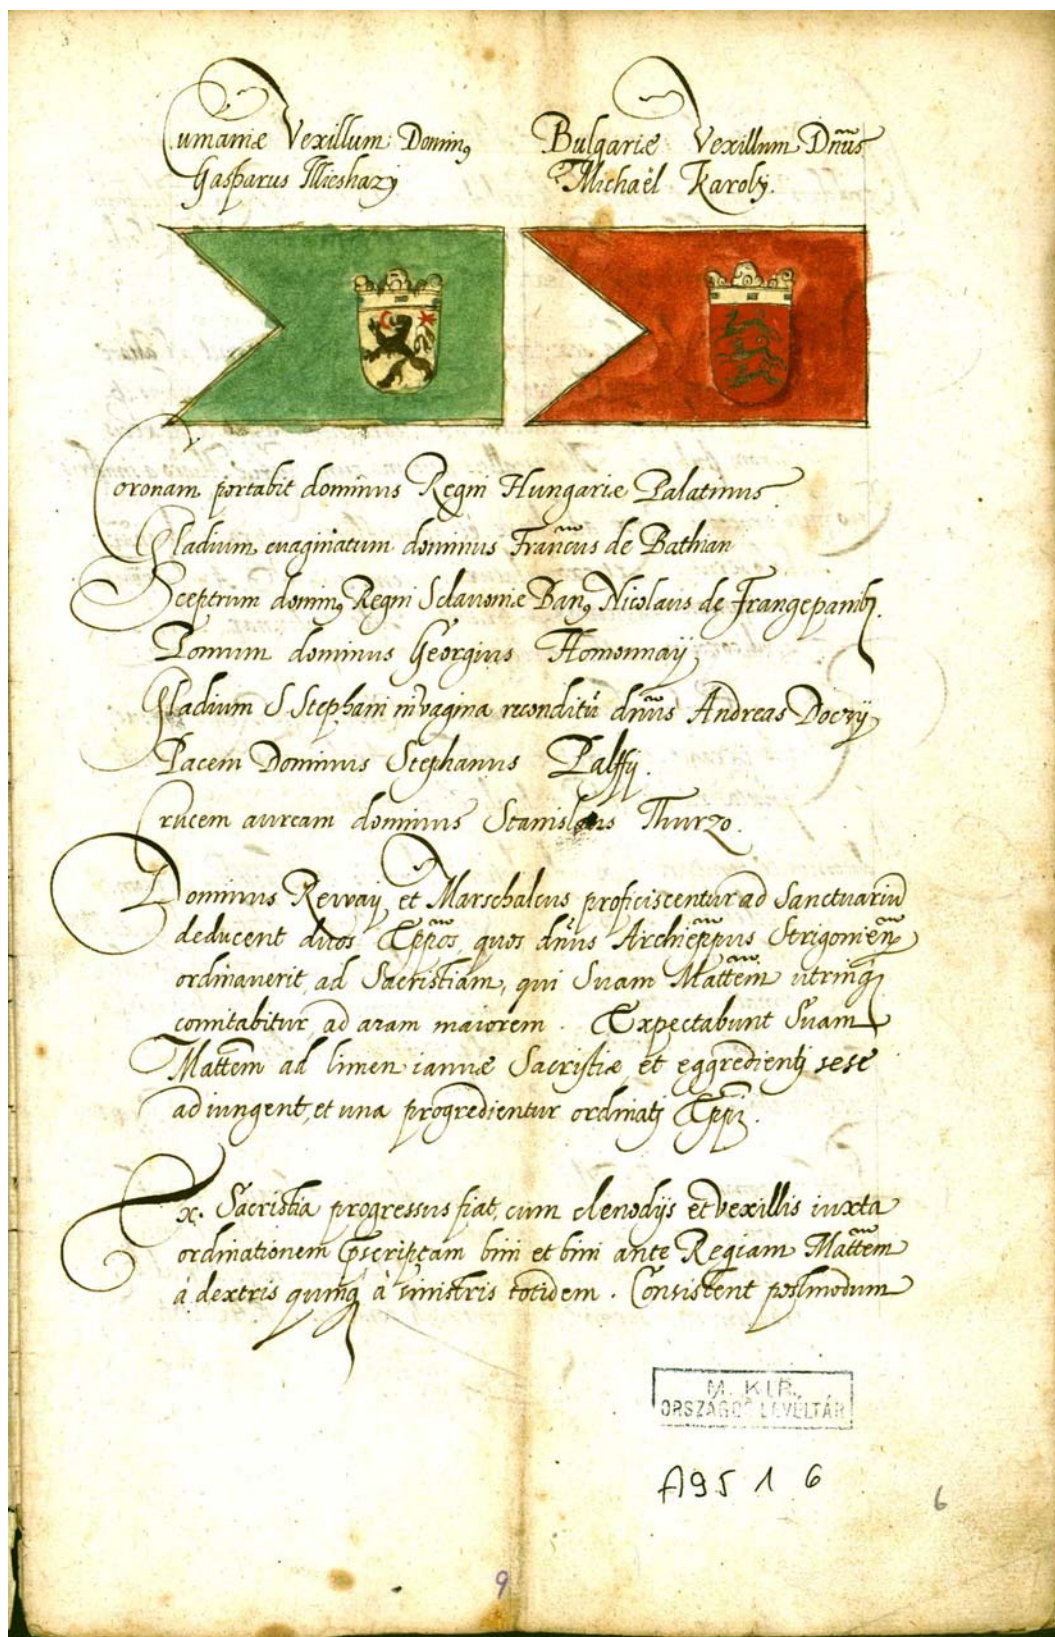 Cumaniæ Vexillum Dominꝰ
Gasparus Illieshazÿ
Bulgariæ Vexillum Dn̄us
Michaël Karolÿ.
Coronam portabit dominus Regni Hungariæ Palatinus
Gladium evaginatum dominus Fran̄cus de Bathian
Sceptrum dominꝰ Regni Sclavoniæ Banꝰ Nicolaus de Frangepanibꝫ.
Pomum dominus Georgius Homonnaÿ
Gladium S Stephani in vagina reconditū dn̄us Andreas Doczÿ
Pacem Dominus Stephanus Palffÿ.
Crucem auream dominus Stanislaus Thurzo.
Dominus Rewaÿ et Marschalcus proficiscentur ad Sanctuariū
deducent duos Ep̄pos, quos dn̄us Archiep̄pus Strigonien̄
ordinaverit, ad Sacristiam, qui Suam Mattēm utrinqꝫ
comitabitur ad aram maiorem. Expectabunt Suam
Mattēm ad limen ianuæ Sacristiæ et eggredienti sese
adiungent, et una progredientur ordinatj Ep̄pi.
Ex Sacristia progressus fiat, cum clenodÿs et vexillis iuxta
ordinationem p̄scriptam bini et bini ante Regiam Mattēm
à dextris quinqꝫ à sinistris totidem. Consistent postmodum
M. KIR.
ORSZÁGOS LEVÉLTÁR
A95 1 6
6
9